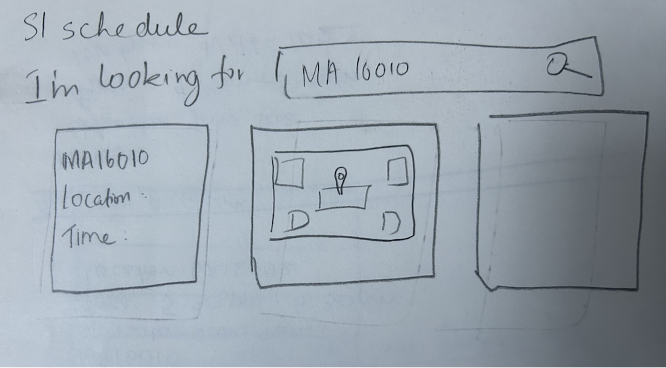 SI schedule
I'm looking for MA 16010
MA16010
Location :
Time :
D D